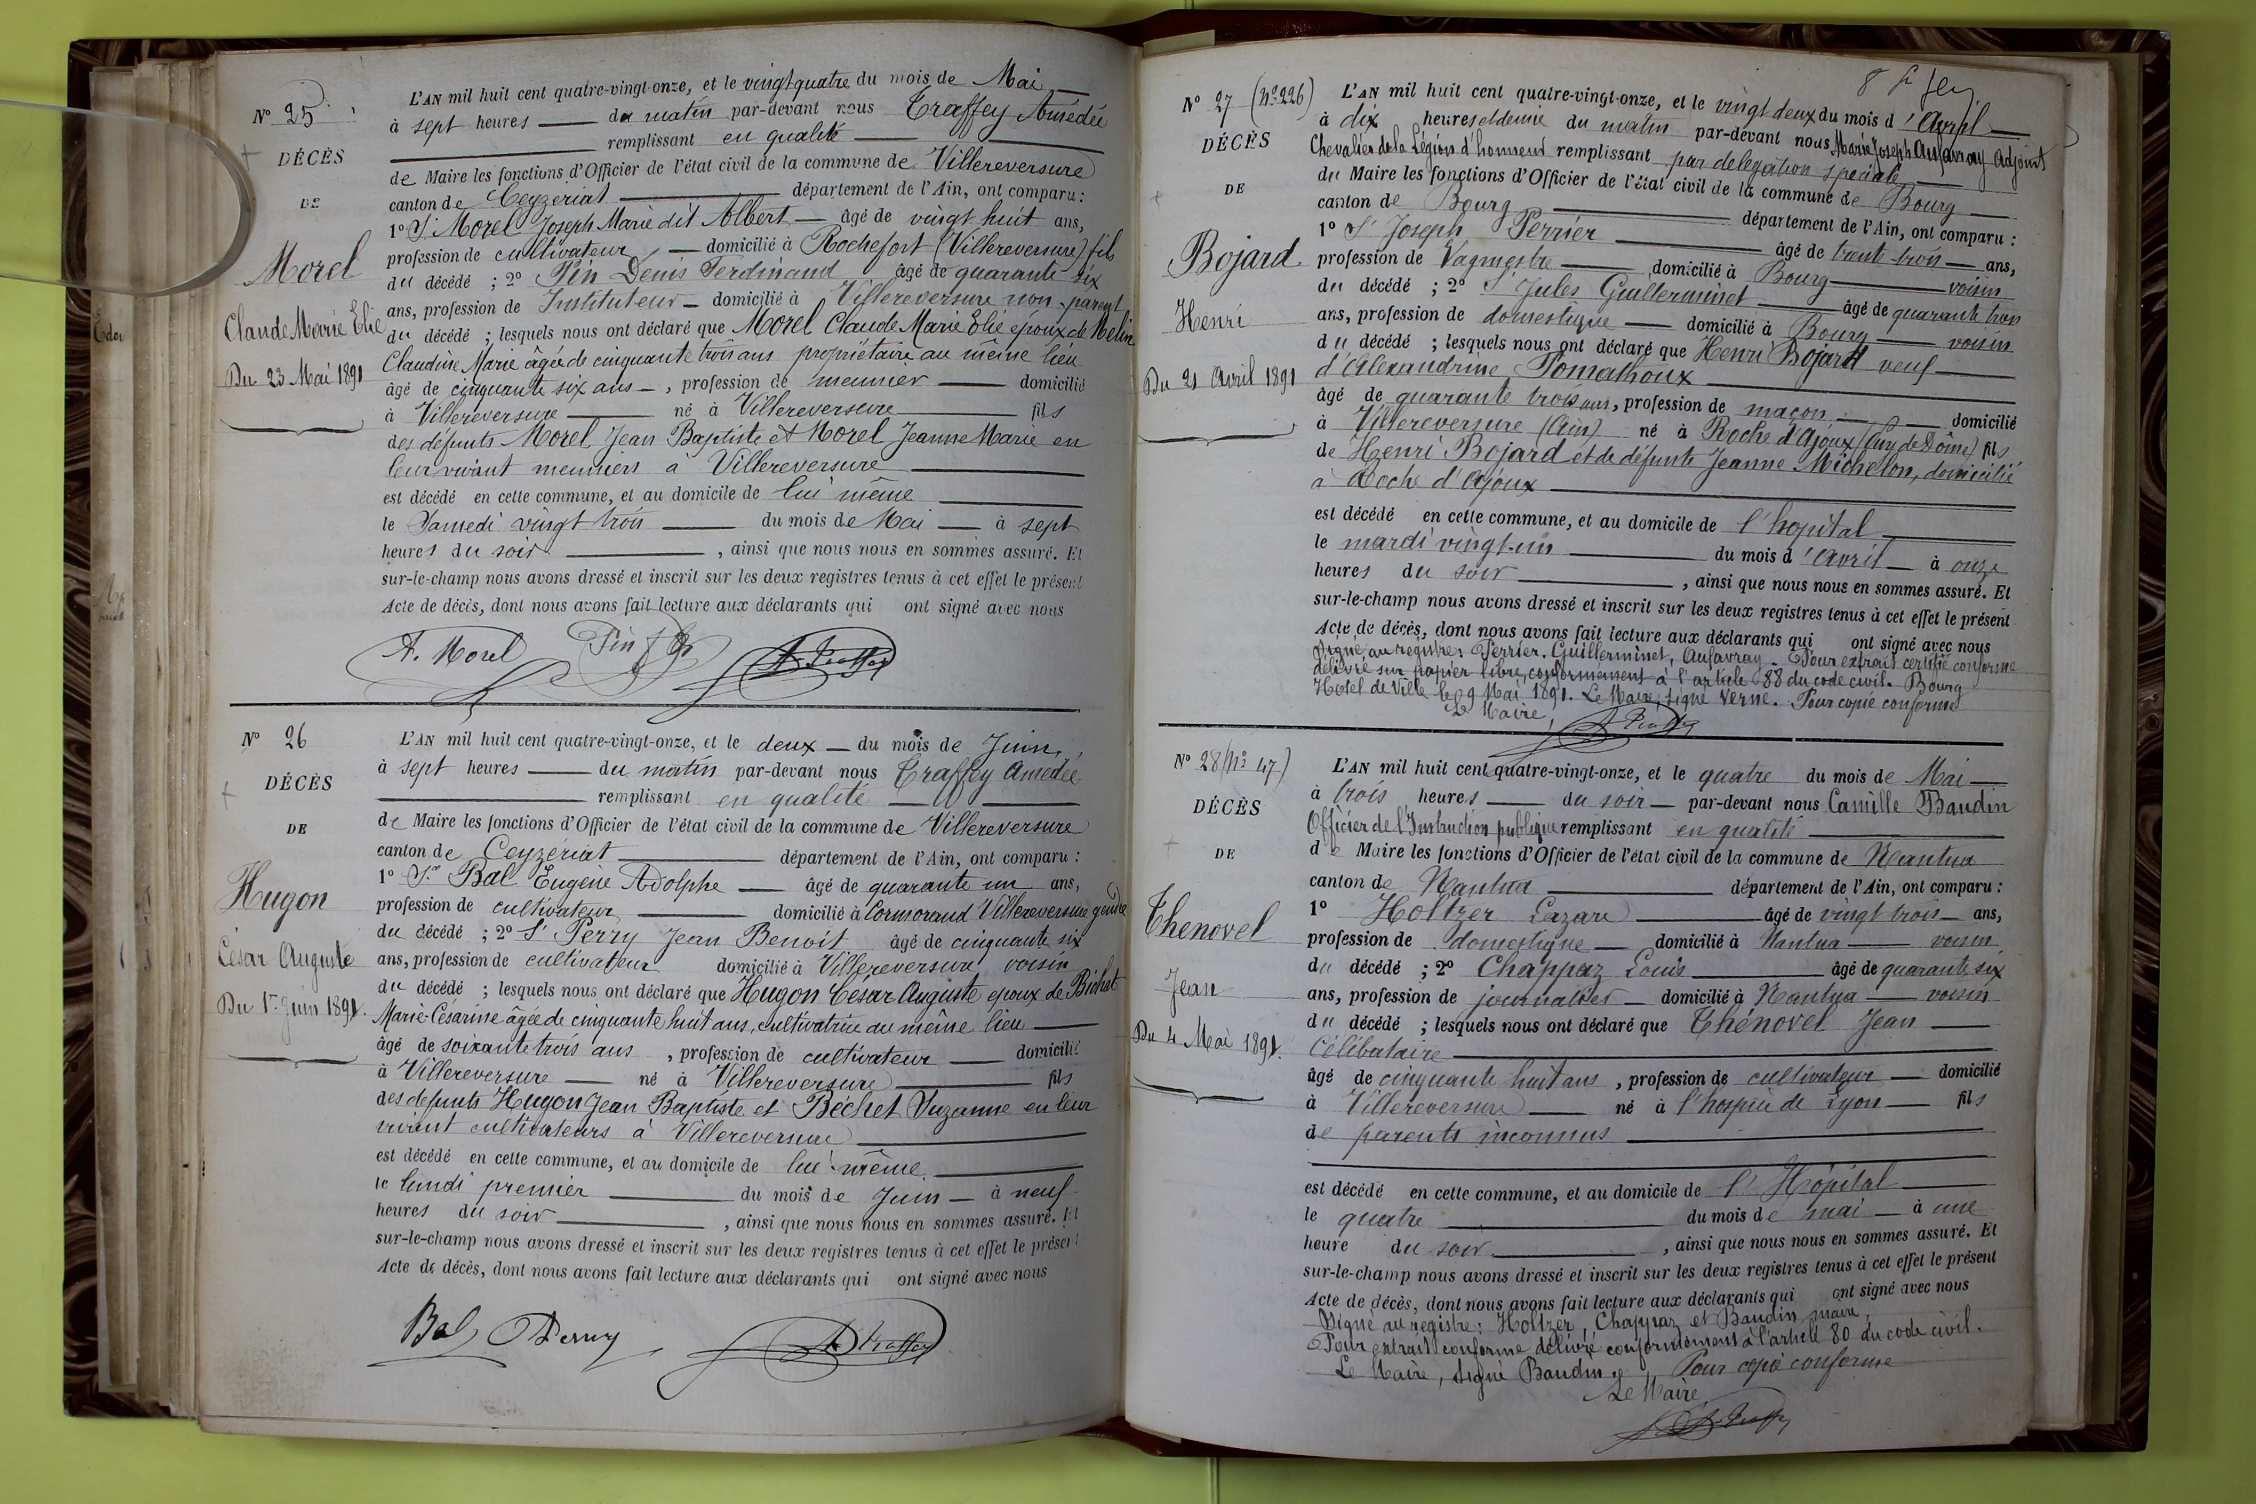 N° 25
DÉCÈS
DE
Morel
Claude Marie Elie
Du 23 Mai 1891
L'AN mil huit cent quatre-vingt-onze, et le vingt quatre du mois de Mai
à sept heures du matin par-devant nous Traffey Amédée
remplissant en qualité
de Maire les fonctions d'Officier de l'état civil de la commune de Villereversure
canton de Ceyzériat département de l'Ain, ont comparu :
1° Sr Morel Joseph Marie dit Albert âgé de vingt huit ans,
profession de cultivateur domicilié à Rochefort (Villereversure) fils
du décédé ; 2° Pin Denis Ferdinand âgé de quarante six
ans, profession de Instituteur domicilié à Villereversure non parent
du décédé ; lesquels nous ont déclaré que Morel Claude Marie Elie époux de Melin
Claudine Marie âgée de cinquante trois ans propriétaire au même lieu
âgé de cinquante six ans, profession de meunier domicilié
à Villereversure né à Villereversure fils
des défunts Morel Jean Baptiste et Morel Jeanne Marie en
leur vivant meuniers à Villereversure
est décédé en cette commune, et au domicile de lui même
le Samedi vingt trois du mois de Mai à sept
heures du soir, ainsi que nous nous en sommes assuré. Et
sur-le-champ nous avons dressé et inscrit sur les deux registres tenus à cet effet le présent
Acte de décès, dont nous avons fait lecture aux déclarants qui ont signé avec nous
A. Morel Pin A. Traffey
N° 26
DÉCÈS
DE
Hugon
César Auguste
Du 1er Juin 1891.
L'AN mil huit cent quatre-vingt-onze, et le deux du mois de Juin,
à sept heures du matin par-devant nous Traffey Amédée
remplissant en qualité
de Maire les fonctions d'Officier de l'état civil de la commune de Villereversure
canton de Ceyzériat département de l'Ain, ont comparu :
1° Sr Bal Eugène Adolphe âgé de quarante un ans,
profession de cultivateur domicilié à Cormorand Villereversure gendre
du décédé ; 2° Sr Perry Jean Benoit âgé de cinquante six
ans, profession de cultivateur domicilié à Villereversure voisin
du décédé ; lesquels nous ont déclaré que Hugon César Auguste époux de Bichat
Marie-Césarine âgée de cinquante huit ans, cultivatrice au même lieu
âgé de soixante trois ans, profession de cultivateur domicilié
à Villereversure né à Villereversure fils
des défunts Hugon Jean Baptiste et Béchet Suzanne en leur
vivant cultivateurs à Villereversure
est décédé en cette commune, et au domicile de lui-même
le lundi premier du mois de Juin à neuf
heures du soir, ainsi que nous nous en sommes assuré. Et
sur-le-champ nous avons dressé et inscrit sur les deux registres tenus à cet effet le présent
Acte de décès, dont nous avons fait lecture aux déclarants qui ont signé avec nous
Bal Perry A. Traffey
N° 27 (N° 226)
DÉCÈS
DE
Bojard
Henri
Du 21 Avril 1891
L'AN mil huit cent quatre-vingt-onze, et le vingt deux du mois d'Avril
à dix heures et demie du matin par-devant nous Marie Joseph Aufavray Adjoint
Chevalier de la Légion d'honneur remplissant par délégation spéciale
du Maire les fonctions d'Officier de l'état civil de la commune de Bourg
canton de Bourg département de l'Ain, ont comparu :
1° Sr Joseph Perrier âgé de trente trois ans,
profession de Vagmestre domicilié à Bourg voisin
du décédé ; 2° Sr Jules Guillerminet âgé de quarante trois
ans, profession de domestique domicilié à Bourg voisin
du décédé ; lesquels nous ont déclaré que Henri Bojard veuf
d'Alexandrine Pomathoux
âgé de quarante trois ans, profession de maçon domicilié
à Villereversure (Ain) né à Roche d'Ajoux (Puy de Dôme) fils
de Henri Bojard et de défunte Jeanne Michelon, domicilié
à Roche d'Ajoux
est décédé en cette commune, et au domicile de l'hopital
le mardi vingt-un du mois d'avril à onze
heures du soir, ainsi que nous nous en sommes assuré. Et
sur-le-champ nous avons dressé et inscrit sur les deux registres tenus à cet effet le présent
Acte de décès, dont nous avons fait lecture aux déclarants qui ont signé avec nous
Signé au registre : Perrier, Guillerminet, Aufavray. Pour extrait certifié conforme
délivré sur papier libre, conformément à l'article 88 du code civil. Bourg
Hotel de Ville le 9 Mai 1891. Le Maire, signé Verne. Pour copie conforme
Le Maire, A. Traffey
N° 28 (N° 47)
DÉCÈS
DE
Thenovel
Jean
Du 4 Mai 1891.
L'AN mil huit cent quatre-vingt-onze, et le quatre du mois de Mai
à trois heures du soir par-devant nous Camille Baudin
Officier de l'Instruction publique remplissant en qualité
de Maire les fonctions d'Officier de l'état civil de la commune de Nantua
canton de Nantua département de l'Ain, ont comparu :
1° Holtzer Lazare âgé de vingt trois ans,
profession de domestique domicilié à Nantua voisin
du décédé ; 2° Chappaz Louis âgé de quarante six
ans, profession de journalier domicilié à Nantua voisin
du décédé ; lesquels nous ont déclaré que Thénovel Jean
Célibataire
âgé de cinquante huit ans, profession de cultivateur domicilié
à Villereversure né à l'hospice de Lyon fils
de parents inconnus
est décédé en cette commune, et au domicile de l'Hôpital
le quatre du mois de mai à une
heure du soir, ainsi que nous nous en sommes assuré. Et
sur-le-champ nous avons dressé et inscrit sur les deux registres tenus à cet effet le présent
Acte de décès, dont nous avons fait lecture aux déclarants qui ont signé avec nous
Signé au registre : Holtzer, Chappaz et Baudin maire,
Pour extrait conforme délivré conformément à l'article 80 du code civil.
Le Maire, signé Baudin. Pour copie conforme
Le Maire
A. Traffey